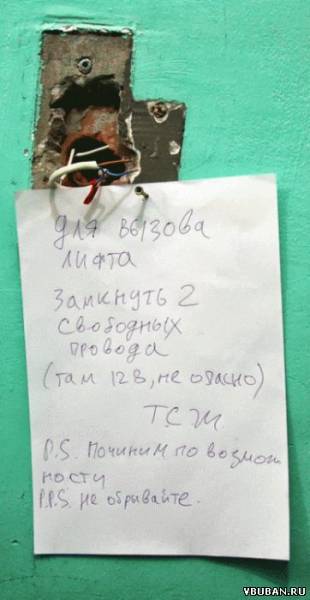 для вызова
лифта
Замкнуть 2
свободных
провода
(там 12В, не опасно)
ТСЖ
P.S. Починим по возмож
ности
P.P.S. Не обрывайте.
VBUBAN.RU